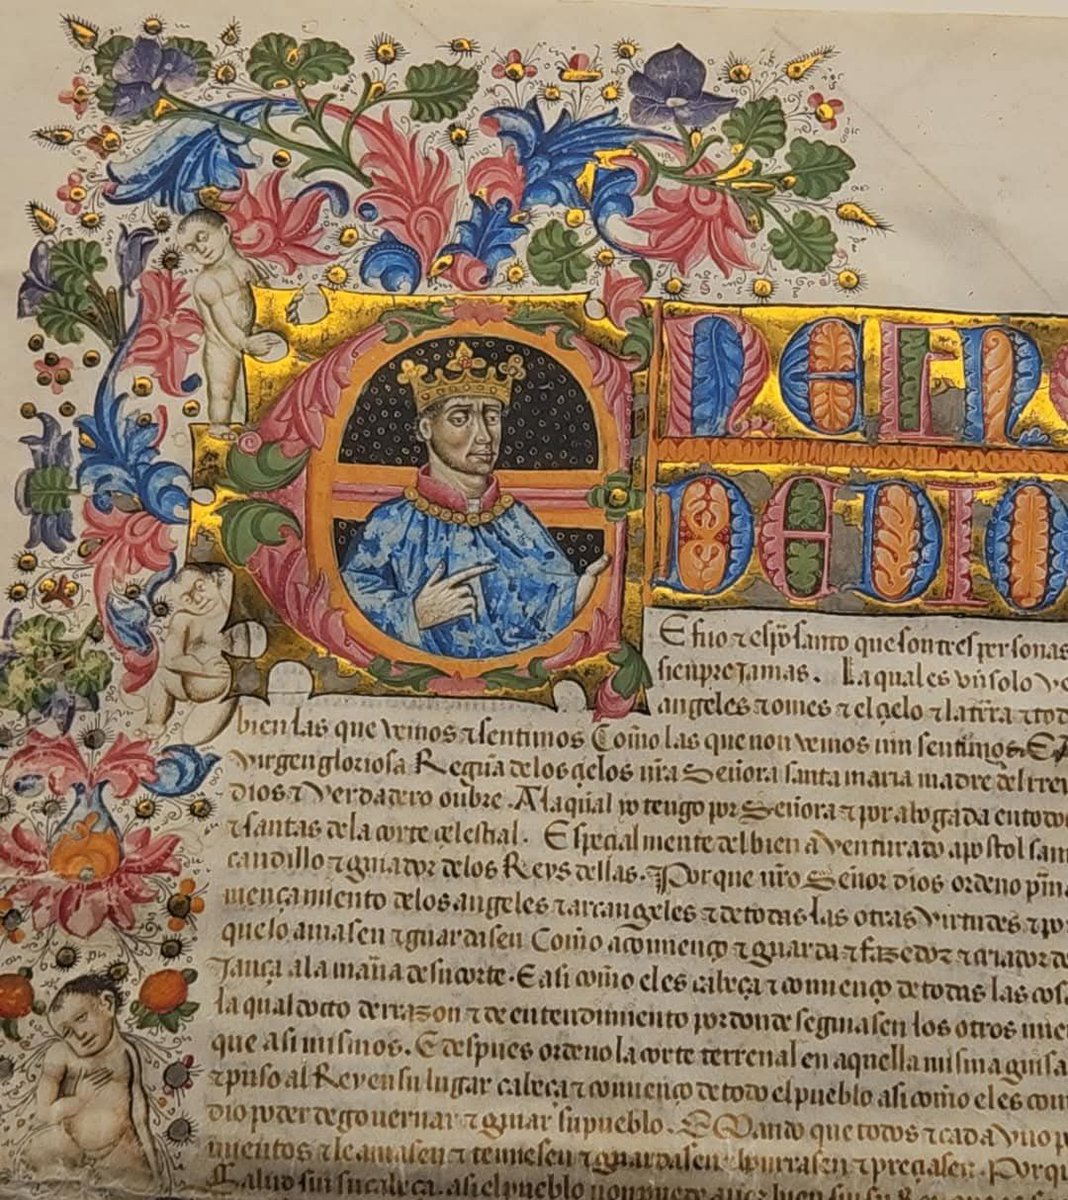 E NERNE
DE DIO
E fijo ⁊ esp̃o santo que son tres personas
sienpre jamas. La qual es vn solo
angeles ⁊ omes ⁊ el çelo ⁊ la tr̃ra ⁊ tod
bien las que vemos ⁊ sentimos Com̃o las que non vemos nin sentimos. E
Virgen gloriosa Regña de los çelos nr̃a Señora santa maria madre del
dios ⁊ Verdadero onbre. A la qual yo tengo por Señora ⁊ por abogada en todos
⁊ santas de la corte çelestial. Espeçial mente del bien aventurado apostol san
caudillo ⁊ guiador de los Reys dellas. Por que nr̃o Señor dios ordeno
mençamiento de los angeles ⁊ arcangeles ⁊ de todas las otras virtudes ⁊
que lo amasen ⁊ guardasen Com̃o a comienço ⁊ guarda ⁊ fazedor ⁊ criador de
jança a la mañа de su corte. E asi com̃o el es cabeça ⁊ comienço de todas las cos
la qual doto de rrazon ⁊ de entendimiento por donde seguiasen los otros
que asi mismos. E despues ordeno la corte terrenal en aquella misma guisa
⁊ puso al Rey en su lugar cabeça ⁊ comienço de todo el pueblo asi com̃o el es
dio poder de gouernar ⁊ guiar su pueblo. E Mando que todos ⁊ cada vno
⁊ le amasen ⁊ temiesen ⁊ guardasen honrrasen ⁊ preçiasen. Porq
Salud sin su cabeça. asi el pueblo non puede auer bien sin su